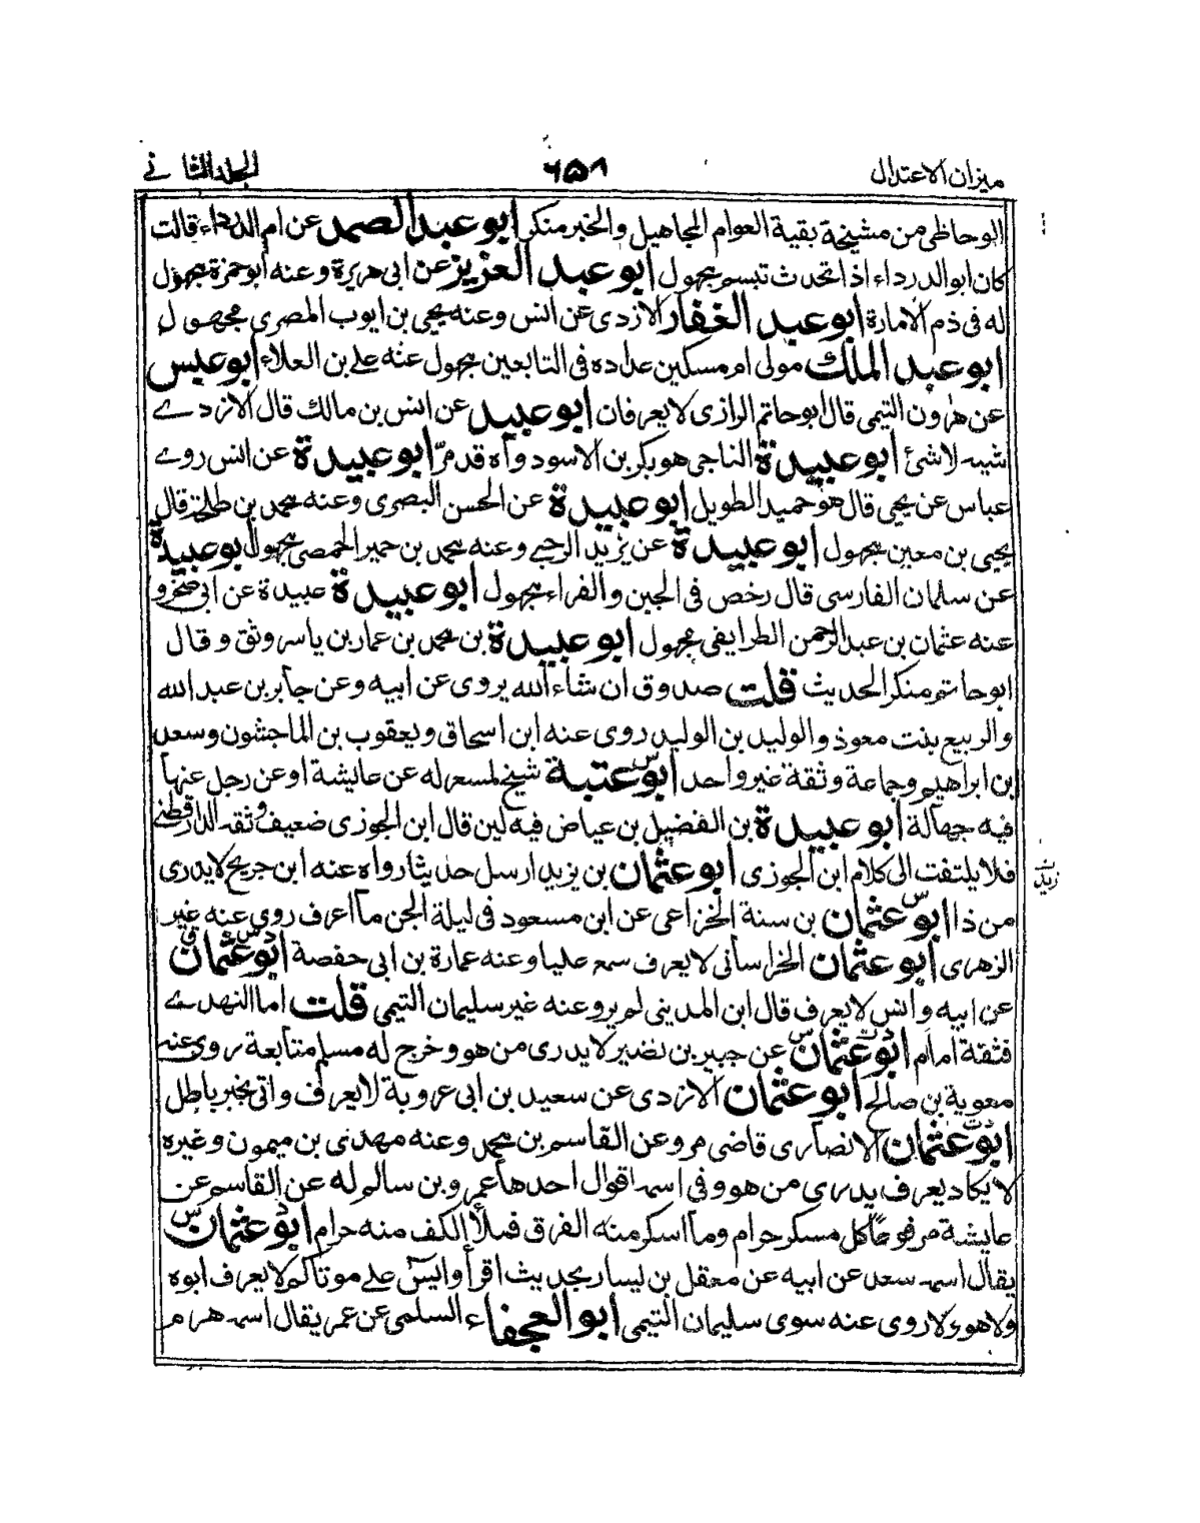 ميزان الاعتدال ٦٥٨ الجلد الثاني
الوحاظى من مشيخة بقية العوام المجاهيل والخبر منكر ابو عبد الصمد عن ام الدرداء قالت
كان ابوالدرداء اذا تحدث تبسم مجهول ابو عبد العزيز عن ابى هريرة وعنه ابوحمزة مجهول
له فى ذم الامارة ابو عبد الغفار الازدى عن انس وعنه يحيى بن ايوب المصرى مجهول
ابو عبد الملك مولى ام مسكين عداده فى التابعين مجهول عنه على بن العلاء ابو عبس
عن هرون التيمى قال ابوحاتم الرازى لا يعرفان ابو عبيد عن انس بن مالك قال الازدے
شبه لاشئ ابو عبيدة الناجى هو بكر بن الاسود واه قد مر ابو عبيدة عن انس روے
عباس عن يحيى قال هو حميد الطويل ابو عبيدة عن الحسن البصرى وعنه محمد بن طلحة قال
يحيى بن معين مجهول ابو عبيدة عن يزيد الرحبے وعنه محمد بن حمير الحمصى مجهول ابو عبيدة
عن سلمان الفارسى قال رخص فى الجبن والفراء مجهول ابو عبيدة عبيدة عن ابى صخر و
عنه عثمان بن عبدالرحمن الطرايفى مجهول ابو عبيدة بن محمد بن عمار بن ياسر وثق و قال
ابوحاتم منكر الحديث قلت صدوق ان شاء الله يروى عن ابيه وعن جابر بن عبد الله
والربيع بنت معوذ والوليد بن الوليد روى عنه ابن اسحاق ويعقوب بن الماجشون وسعد
بن ابراهيم وجماعة وثقة غير واحد ابو عتبة شيخ لمسعر له عن عايشة او عن رجل عنها
فيه جهالة ابو عبيدة بن الفضيل بن عياض فيه لين قال ابن الجوزى ضعيف وثقه الدارقطنے
فلا يلتفت الى كلام ابن الجوزى ابو عثمان بن يزيد ارسل حديثا رواه عنه ابن جريج لا يدرى
من ذا ابو عثمان بن سنة الخزاعى عن ابن مسعود فى ليلة الجن ما اعرف روى عنه غير
الزهرى ابو عثمان الخراسانى لا يعرف سمع عليا وعنه عمارة بن ابى حفصة ابو عثمان
عن ابيه وانس لا يعرف قال ابن المدينى لم يرو عنه غير سليمان التيمى قلت اما النهدے
فثقة امام ابو عثمان عن جبير بن نضير لا يدرى من هو وخرج له مسلم متابعة روى عنه
معوية بن صالح ابو عثمان الازدى عن سعيد بن ابى عروبة لا يعرف واتى بخبر باطل
ابو عثمان الانصارى قاضى مرو عن القاسم بن محمد وعنه مهدى بن ميمون وغيره
لا يكاد يعرف يدرى من هو وفى اسمه اقوال احدها عمرو بن سالم له عن القاسم عن
عايشة مرفوعا كل مسكر حرام وما اسكر منه الفرق فملأ الكف منه حرام ابو عثمان
يقال اسمه سعد عن ابيه عن معقل بن يسار بحديث اقرأوا يس على موتاكم لا يعرف ابوه
ولا هو ولا روى عنه سوى سليمان التيمى ابو العجفاء السلمى عن عمر يقال اسمه هرم
زيدت